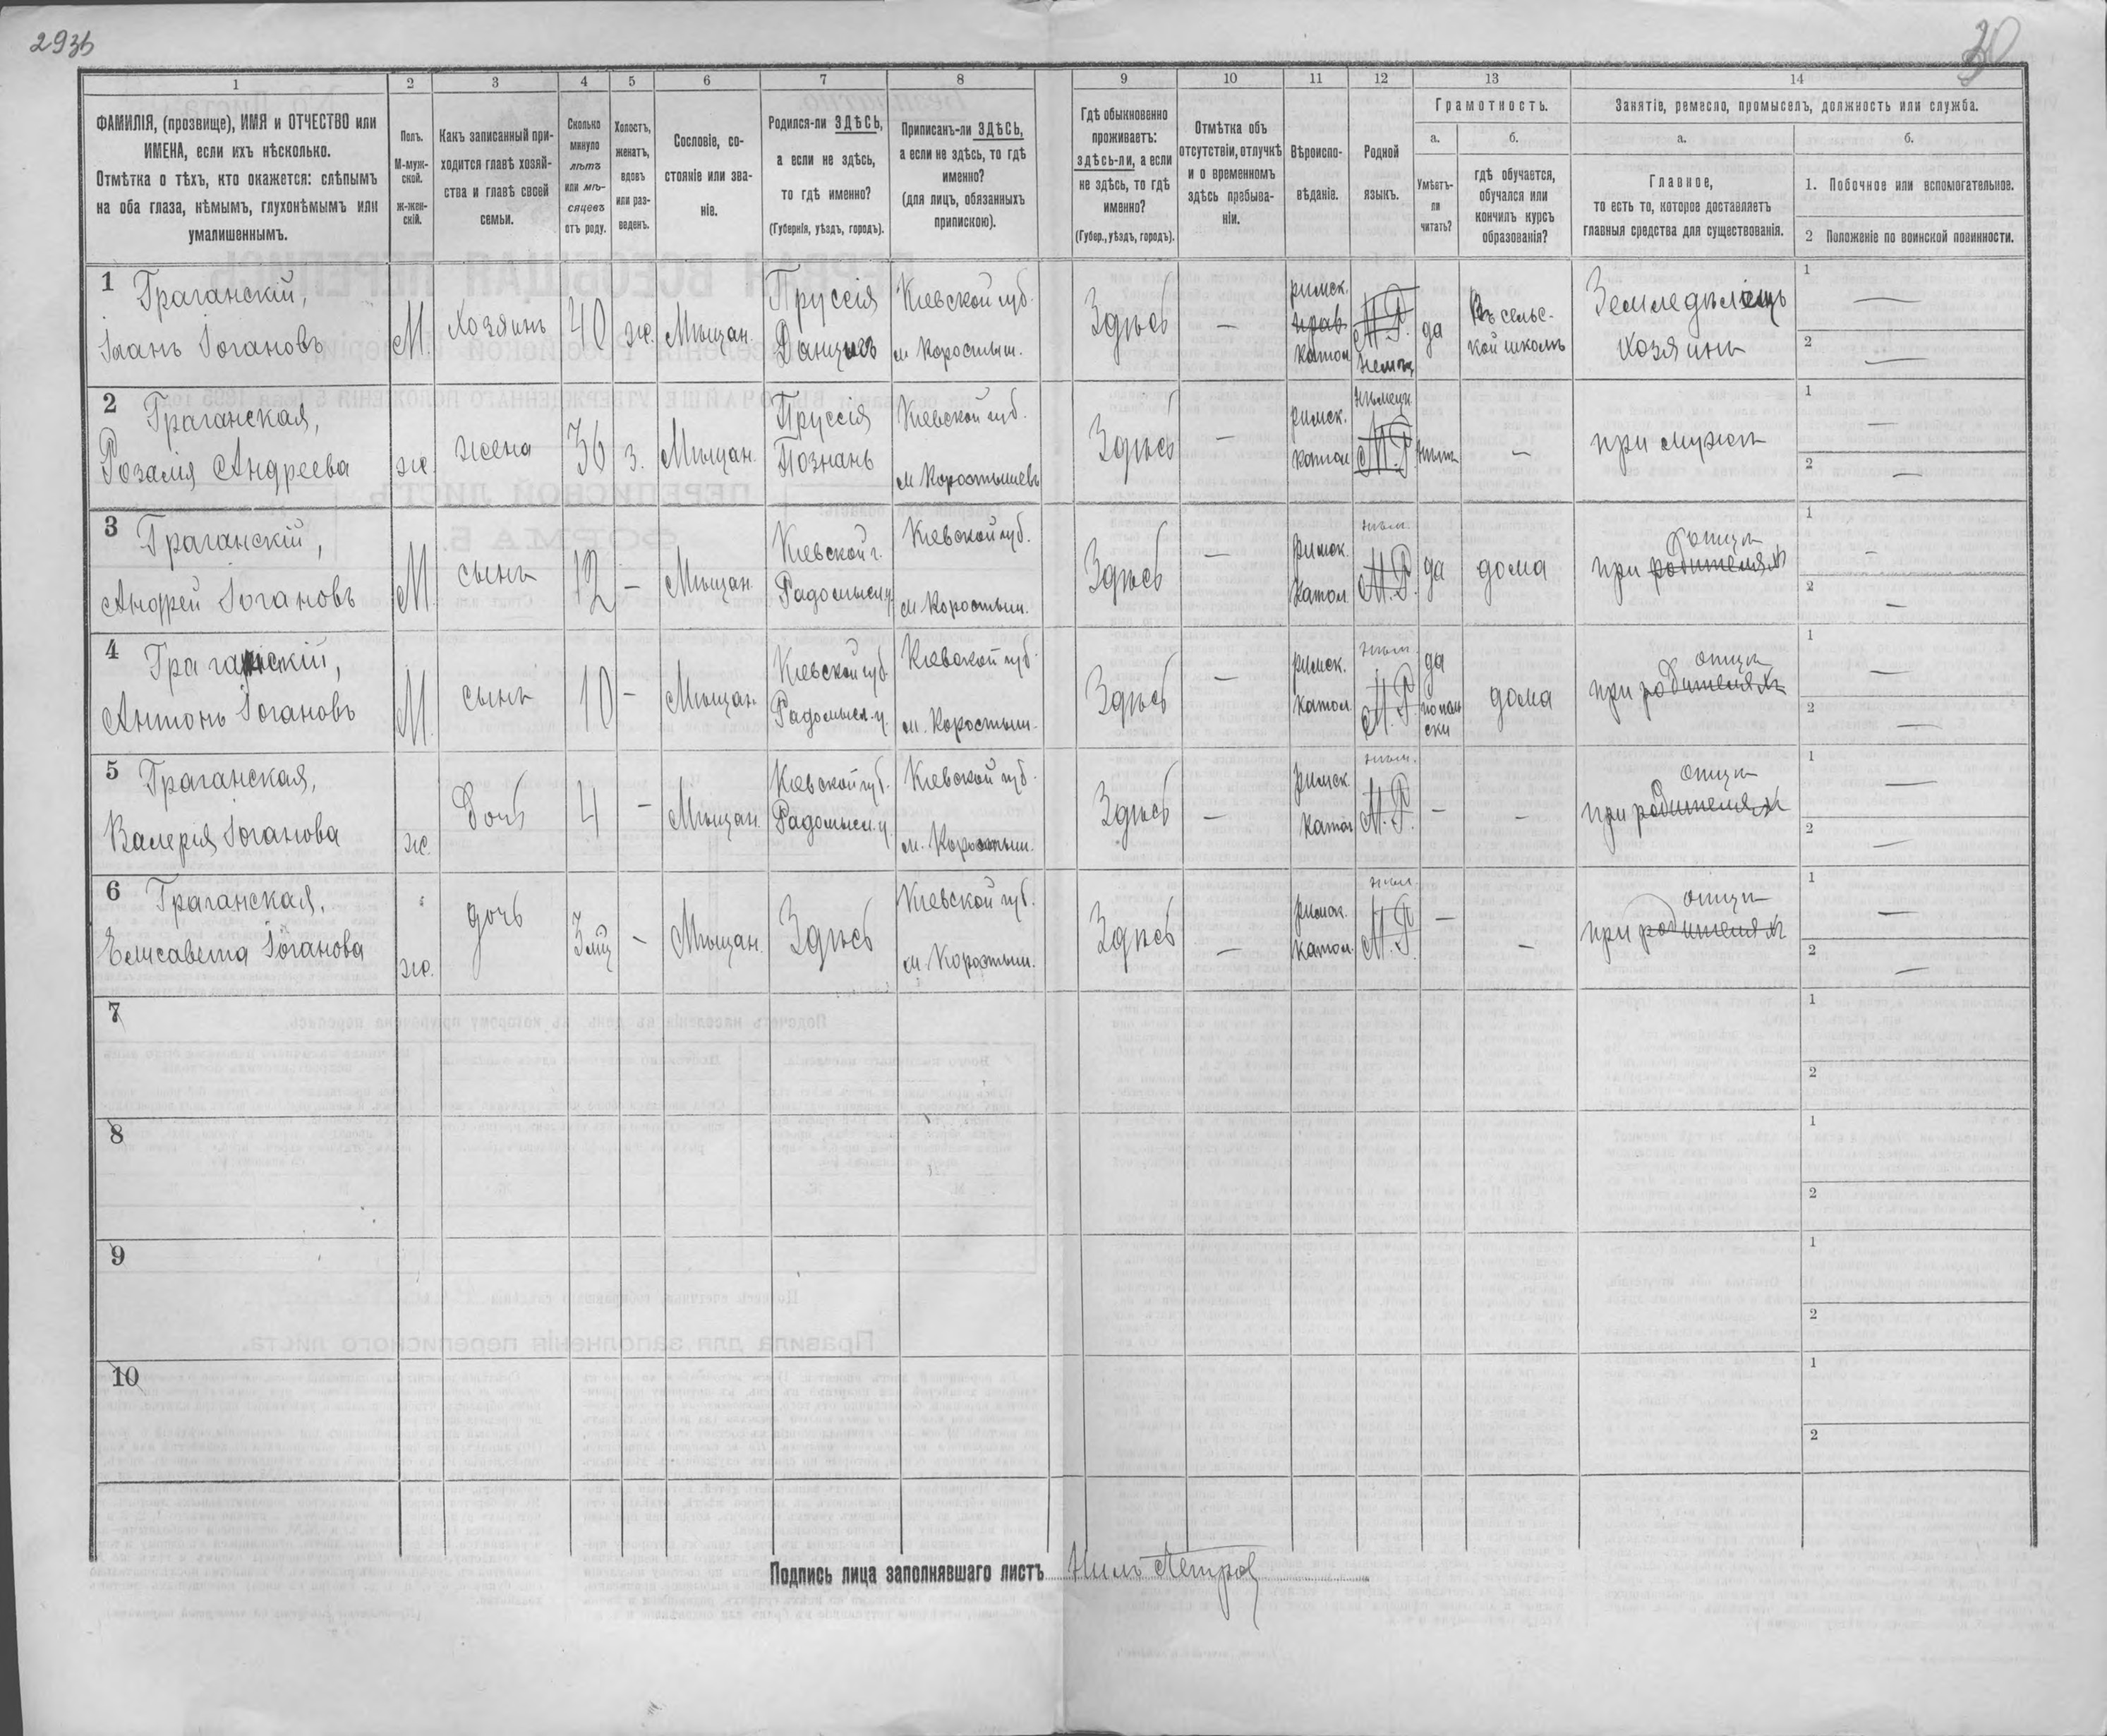 293
30
1
2
3
4
5
6
7
8
9
10
11
12
13
14
ФАМИЛІЯ, (прозвище), ИМЯ и ОТЧЕСТВО или
ИМЕНА, если ихъ нѣсколько.
Отмѣтка о тѣхъ, кто окажется: слѣпымъ
на оба глаза, нѣмымъ, глухонѣмымъ или
умалишеннымъ.
Полъ.
М-муж-
ской.
ж-жен-
скій.
Какъ записанный при-
ходится главѣ хозяй-
ства и главѣ своей
семьи.
Сколько
минуло
лѣтъ
или мѣ-
сяцевъ
отъ роду.
Холостъ,
женатъ,
вдовъ
или раз-
веденъ.
Сословіе, со-
стояніе или зва-
ніе.
Родился-ли ЗДѢСЬ,
а если не здѣсь,
то гдѣ именно?
(Губернія, уѣздъ, городъ).
Приписанъ-ли ЗДѢСЬ,
а если не здѣсь, то гдѣ
именно?
(для лицъ, обязанныхъ
припискою).
Гдѣ обыкновенно
проживаетъ:
здѣсь-ли, а если
не здѣсь, то гдѣ
именно?
(Губер., уѣздъ, городъ).
Отмѣтка объ
отсутствіи, отлучкѣ
и о временномъ
здѣсь пребыва-
ніи.
Вѣроиспо-
вѣданіе.
Родной
языкъ.
Грамотность.
а.
Умѣетъ-
ли
читать?
б.
гдѣ обучается,
обучался или
кончилъ курсъ
образованія?
Занятіе, ремесло, промыселъ, должность или служба.
а.
Главное,
то есть то, которое доставляетъ
главныя средства для существованія.
б.
1. Побочное или вспомогательное.
2 Положеніе по воинской повинности.
1 Граганскій,
Іоганъ Югановъ
М.
Хозяинъ
40
ж.
Мѣщан.
Пруссія
Данцигъ
Кіевской губ.
м Коростыш.
Здѣсь
—
римск.
прав.
катол
М.Р.
немец
да
Въ сельс-
кой школѣ
Земледѣлецъ
хозяинъ
1 —
2 —
2 Граганская,
Розалія Андреева
ж.
жена
36
з.
Мѣщан.
Пруссія
Познань
Кіевской губ.
м Коростышевъ
Здѣсь
—
римск.
катол
нѣмецк.
М.Р.
нѣтъ
—
при мужѣ
1 —
2 —
3 Граганскій,
Андрей Югановъ
М
сынъ
12
—
Мѣщан.
Кіевской г.
Радомысл у
Кіевской губ.
м Коростыш.
Здѣсь
—
Римск.
Катол
нѣм.
М.Р.
да
дома
отцѣ
при родителяхъ
1 —
2 —
4 Граганскій,
Антонъ Югановъ
М
сынъ
10
—
Мѣщан.
Кіевской губ
Радомысл.у.
Кіевской губ.
м. Коростыш.
Здѣсь
—
римск.
катол.
нѣм.
М.Р.
да
по поль
ски
дома
отцѣ
при родителяхъ
1 —
2 —
5 Граганская,
Валерія Юганова
ж.
Дочь
4
—
Мѣщан.
Кіевской губ.
Радомысл.у.
Кіевской губ.
м. Коростыш.
Здѣсь
—
Римск
Катол
нѣм.
М.Р.
—
—
отцѣ
при родителяхъ
1 —
2 —
6 Граганская,
Елисавета Юганова
ж.
дочь
3 мѣ
—
Мѣщан.
Здѣсь
Кіевской губ.
м. Коростыш.
Здѣсь
—
Римск.
Катол.
нѣм
М.Р.
—
—
отцѣ
при родителяхъ
1 —
2 —
7
1
2
8
1
2
9
1
2
10
1
2
Подпись лица заполнявшаго листъ Нилъ Петров